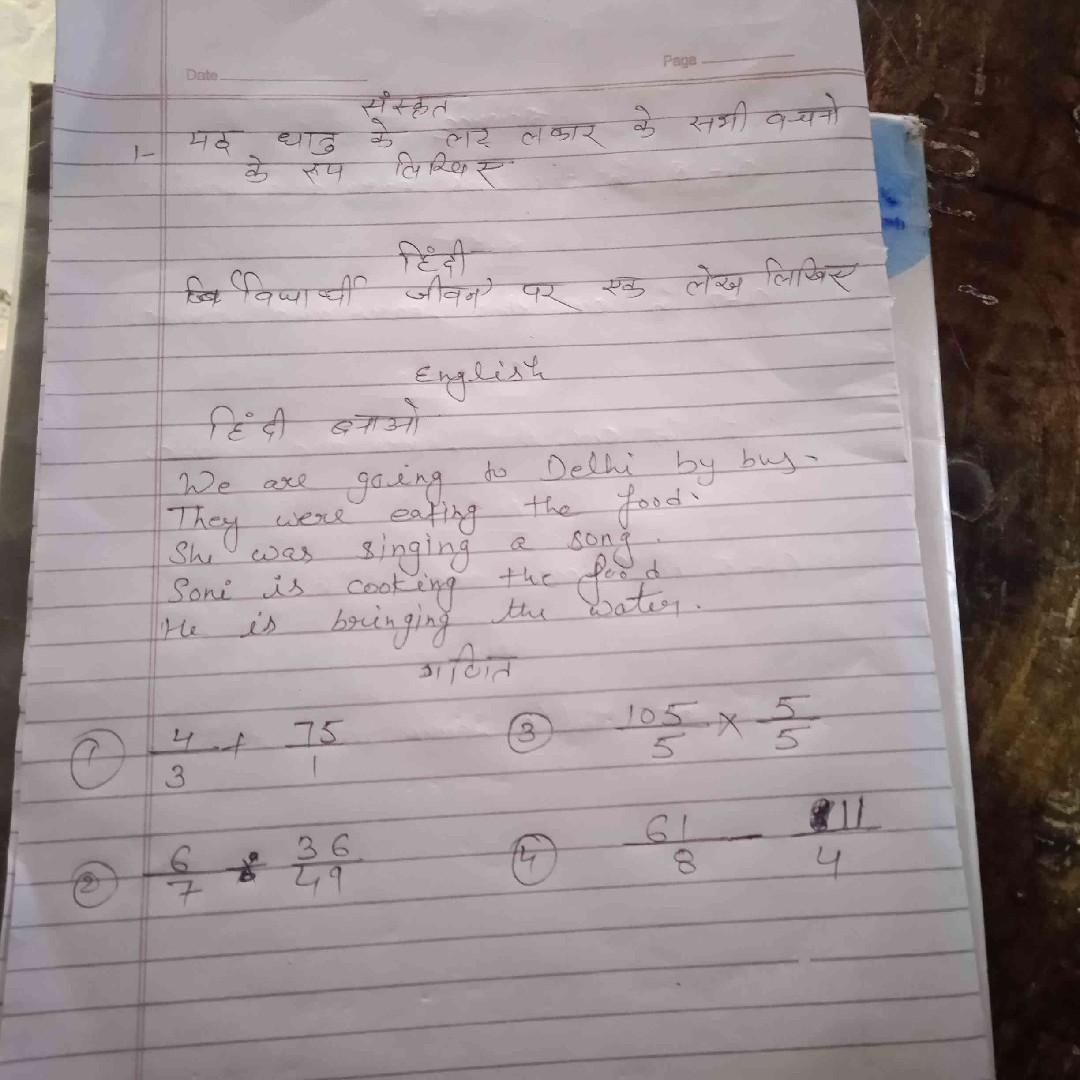 Date
Page
संस्कृत
1- पठ धातु के लट लकार के सभी वचनो
के रूप लिखिए
हिंदी
विद्यार्थी जीवन पर एक लेख लिखिए
English
हिंदी बनाओ
We are going to Delhi by bus.
They were eating the food.
She was singing a song.
Soni is cooking the food
He is bringing the water.
गणित
① 4/3 + 75/1 ③ 105/5 × 5/5
② 6/7 ÷ 36/49 ④ 61/8 - 11/4